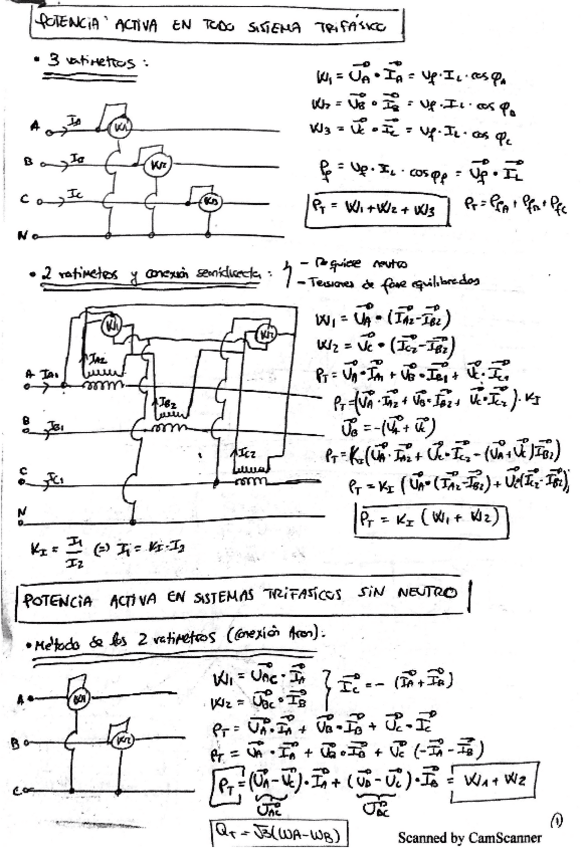 POTENCIA ACTIVA EN TODO SISTEMA TRIFÁSICO
• 3 vatimetros :
W1 = U⃗A • I⃗A = Uf · IL · cos φA
W2 = U⃗B • I⃗B = Uf · IL · cos φB
W3 = U⃗C • I⃗C = Uf · IL · cos φC
Pf = Uf · IL · cos φf = U⃗f • I⃗L
PT = W1 + W2 + W3
PT = PfA + PfB + PfC
A IA W1
B IB W2
C IC W3
N
• 2 vatimetros y conexión semidirecta :
- Requiere neutro
- Tensiones de fase equilibradas
W1 = U⃗A • (I⃗A2 - I⃗B2)
W2 = U⃗C • (I⃗C2 - I⃗B2)
PT = U⃗A • I⃗A1 + U⃗B • I⃗B1 + U⃗C • I⃗C1
PT = (U⃗A · I⃗A2 + U⃗B · I⃗B2 + U⃗C • I⃗C2) · KI
U⃗B = -(U⃗A + U⃗C)
PT = KI (U⃗A · I⃗A2 + U⃗C • I⃗C2 - (U⃗A + U⃗C) I⃗B2)
PT = KI (U⃗A • (I⃗A2 - I⃗B2) + U⃗C (I⃗C2 - I⃗B2))
PT = KI (W1 + W2)
W1 W2
A IA1 IA2
B IB1 IB2
C IC1 IC2
N
KI = I1/I2 (=) I1 = KI · I2
POTENCIA ACTIVA EN SISTEMAS TRIFASICOS SIN NEUTRO
• Método de los 2 vatimetros (conexión Aron) :
W1 = U⃗AC • I⃗A
W2 = U⃗BC • I⃗B
I⃗C = - (I⃗A + I⃗B)
PT = U⃗A • I⃗A + U⃗B • I⃗B + U⃗C • I⃗C
PT = U⃗A • I⃗A + U⃗B • I⃗B + U⃗C (-I⃗A - I⃗B)
PT = (U⃗A - U⃗C) • I⃗A + (U⃗B - U⃗C) • I⃗B = W1 + W2
U⃗AC U⃗BC
QT = √3 (WA - WB)
A W1
B W2
C
(1)
Scanned by CamScanner